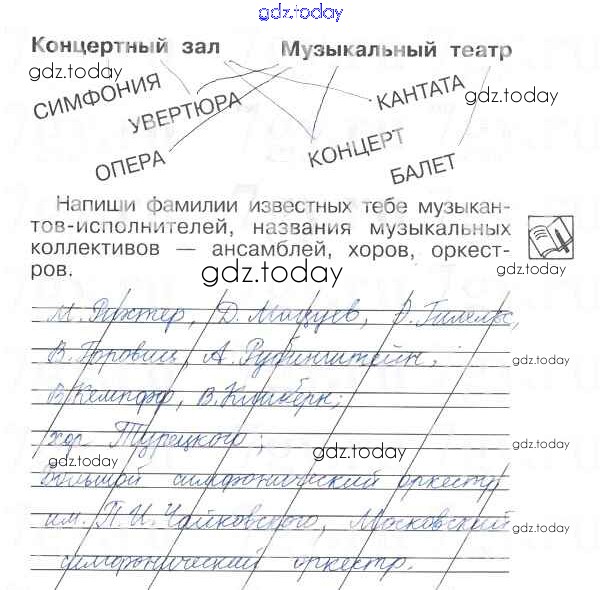 gdz.today
Концертный зал Музыкальный театр
gdz.today
СИМФОНИЯ
УВЕРТЮРА
КАНТАТА
gdz.today
ОПЕРА
КОНЦЕРТ
БАЛЕТ
Напиши фамилии известных тебе музыкан-
тов-исполнителей, названия музыкальных
коллективов — ансамблей, хоров, оркест-
ров.
gdz.today
gdz.today
М. Рихтер, Д. Мацуев, Э. Гилельс,
В. Горовиц, А. Рубинштейн;
gdz.today
В. Кемпфф, В. Клиберн;
хор Турецкого;
gdz.today
gdz.today
gdz.today
Большой симфонический оркестр
им. П. И. Чайковского, Московский
gdz.today
симфонический оркестр.